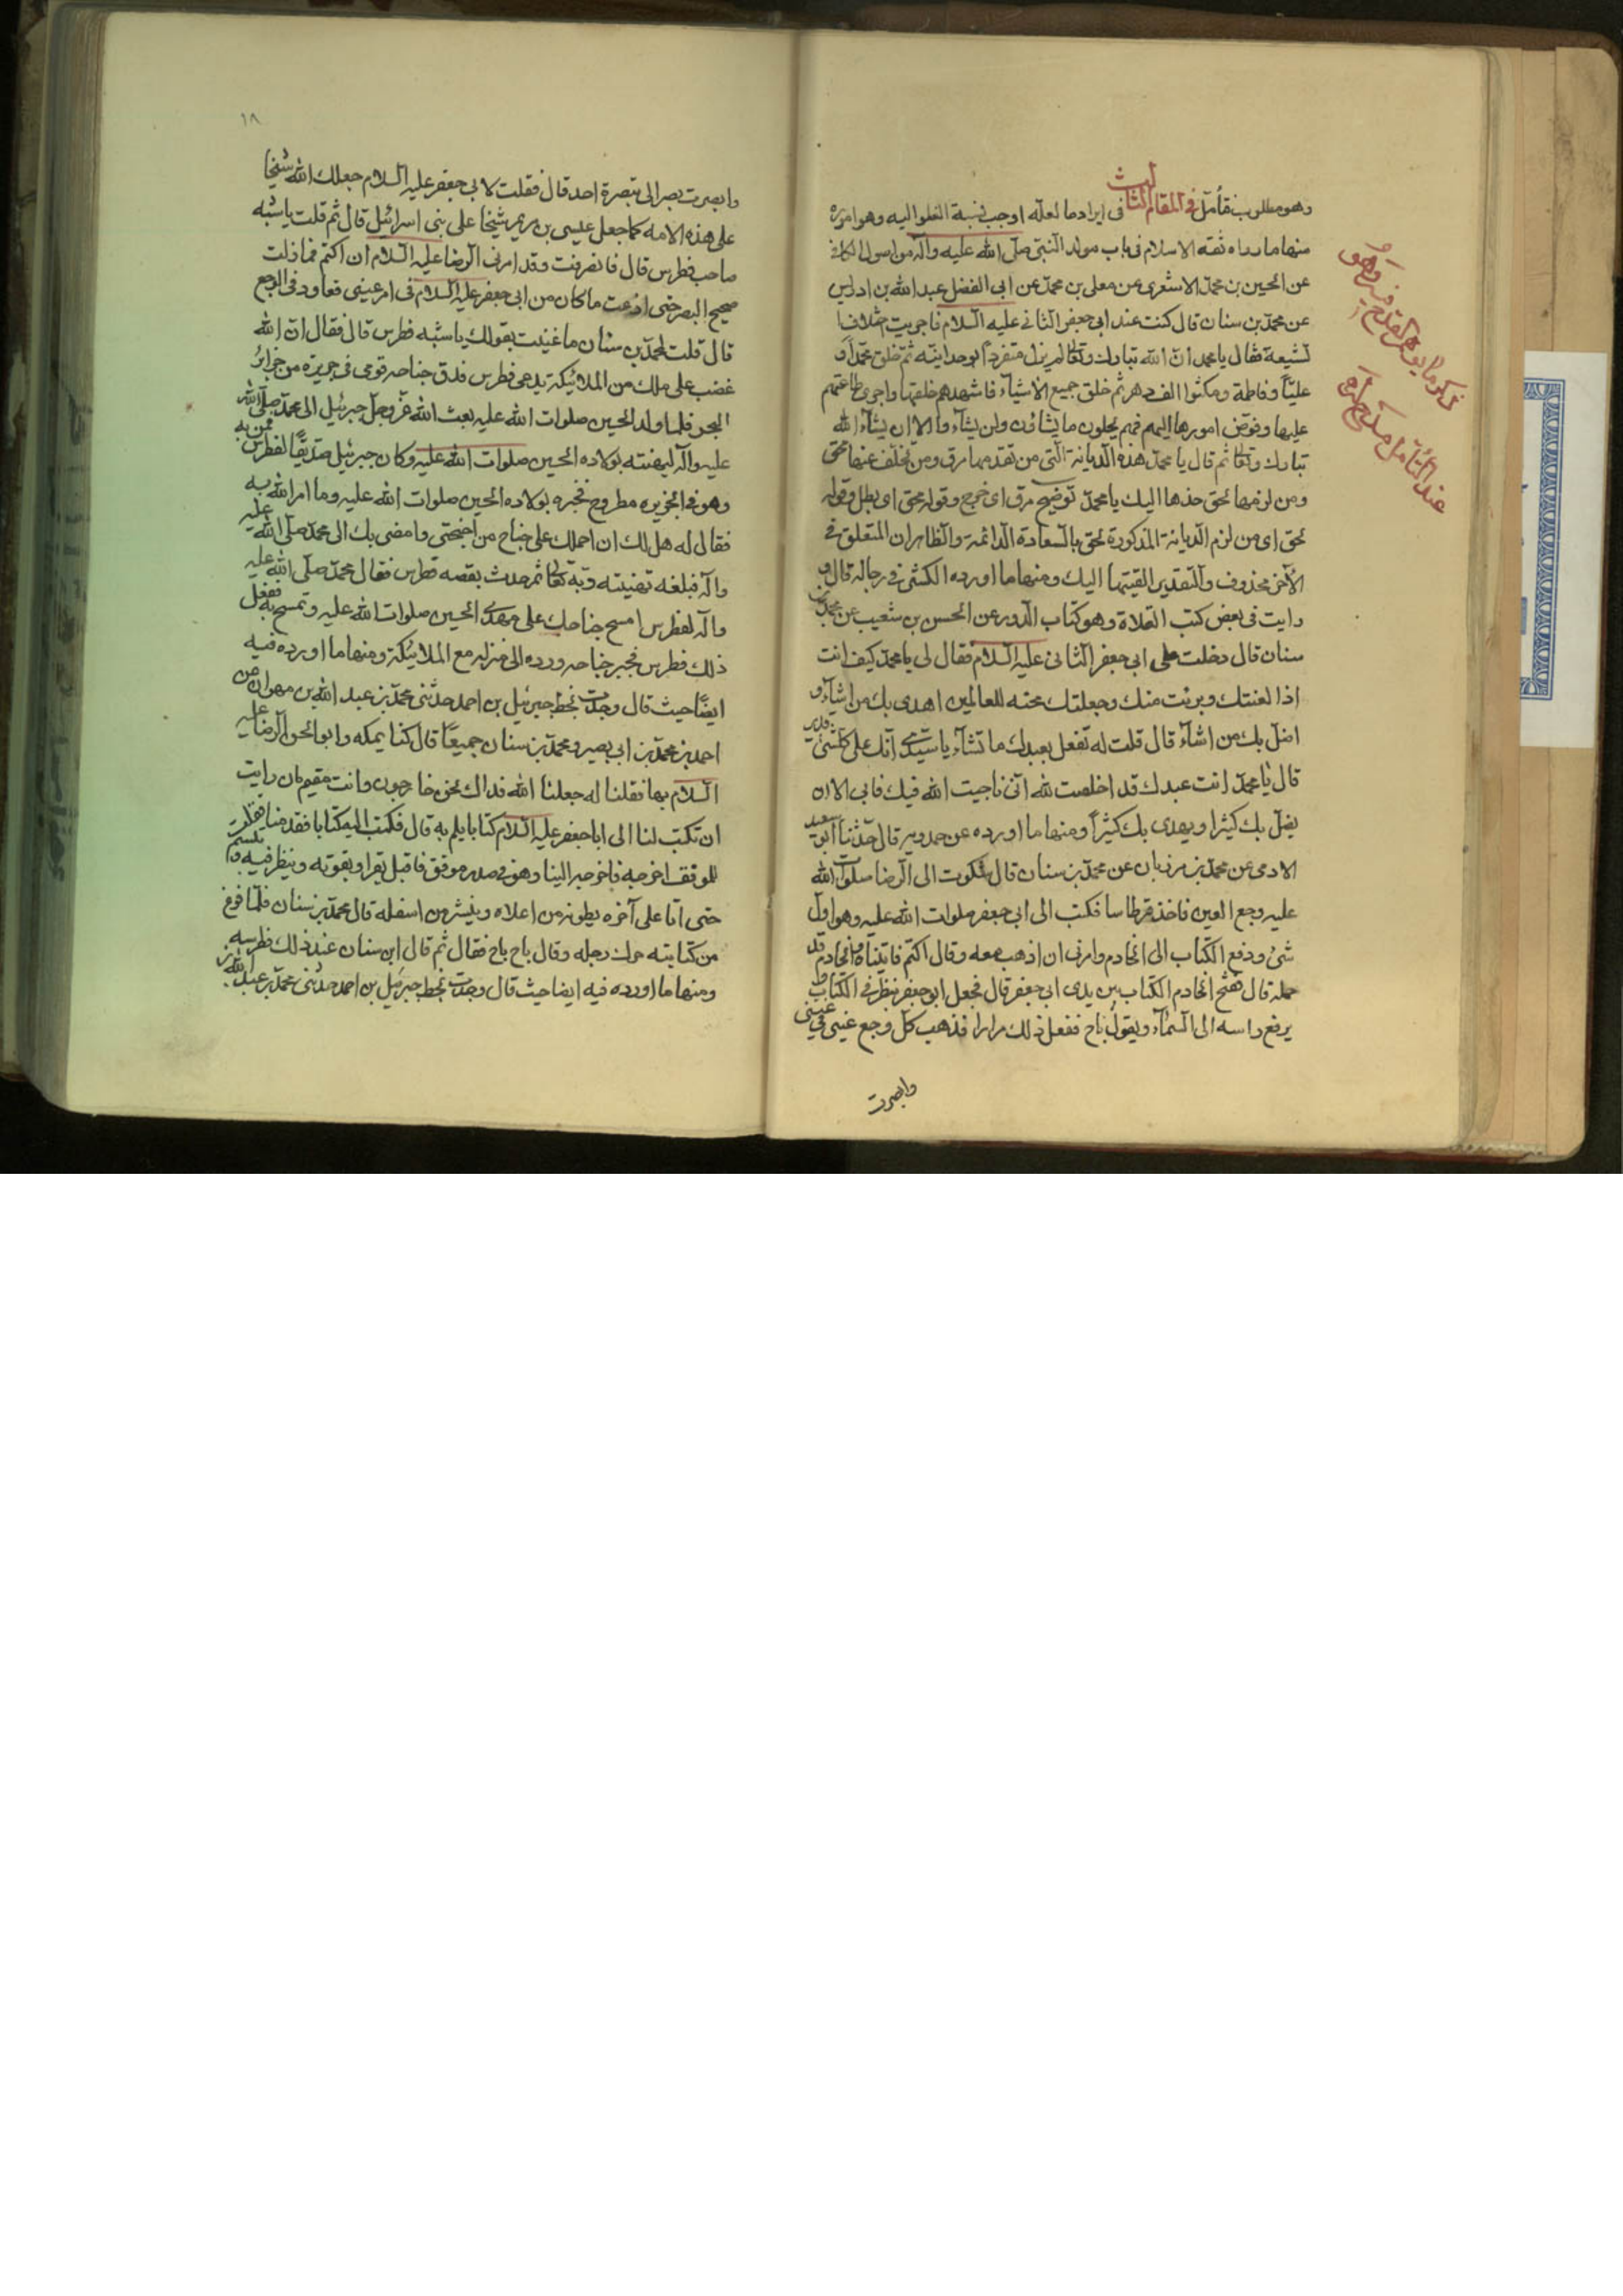 وهو مطلوب فتأمل في المقام الثالث في ايراد ما لعله اوجب نسبة الغلو اليه وهو امور
منها ما رواه ثقه الاسلام في باب مولد النبي صلى الله عليه وآله من اصول الكافي
عن الحسين بن محمد الاشعري عن معلى بن محمد عن ابي الفضل عبد الله بن ادريس
عن محمد بن سنان قال كنت عند ابي جعفر الثاني عليه السلام فاجريت اختلاف
الشيعة فقال يا محمد ان الله تبارك وتعالى لم يزل متفردا بوحدانيته ثم خلق محمدا و
عليا وفاطمة ومكثوا الف دهر ثم خلق جميع الاشياء فاشهدهم خلقها واجرى طاعتهم
عليها وفوض امورها اليهم فهم يحلون ما يشاؤن ولن يشاء وا الا ان يشاء الله
تبارك وتعالى ثم قال يا محمد هذه الديانة التي من تقدمها مرق ومن تخلف عنها محق
ومن لزمها لحق خذها اليك يا محمد توضيح مرق اى خرج وقوله محق اى بطل وقوله
لحق اى من لزم الديانة المذكورة لحق بالسعادة الدائمة والظاهر ان المتعلق في
الآخر محذوف والتقدير القيتها اليك ومنها ما اورده الكشي في رجاله قال و
رايت في بعض كتب الغلاة وهو كتاب الدور عن الحسن بن شعيب عن محمد بن
سنان قال دخلت على ابي جعفر الثاني عليه السلام فقال لي يا محمد كيف انت
اذا لعنتك وبرئت منك وجعلتك محنه للعالمين اهدى بك من اشاء و
اضل بك من اشاء قال قلت له تفعل بعبدك ما تشاء يا سيدي انك على كل شئ قدير
قال يا محمد انت عبدك قد اخلصت لله اني ناجيت الله فيك فابى الا ان
يضل بك كثيرا ويهدى بك كثيرا ومنها ما اورده عن حمدويه قال حدثنا ابو سعيد
الادمى عن محمد بن مرزبان عن محمد بن سنان قال شكوت الى الرضا صلوات الله
عليه وجع العين فاخذ قرطاسا فكتب الى ابي جعفر صلوات الله عليه وهو اول
شئ ودفع الكتاب الى الخادم وامرنى ان اذهب معه وقال اكتم فاتيناه وخادم قد
حمله قال ففتح الخادم الكتاب بين يدى ابي جعفر قال فجعل ابو جعفر ينظر في الكتاب و
يرفع راسه الى السماء ويقول ناج ففعل ذلك مرارا فذهب كل وجع في عيني
وابصرت
عند التأمل
١٨
وابصرت بصرا لا يبصره احد قال فقلت لابي جعفر عليه السلام جعلك الله شيخا
على هذه الامه كما جعل عيسى بن مريم شيخا على بني اسرائيل قال ثم قلت يا شبه
صاحب فطرس قال فانصرفت وقد امرنى الرضا عليه السلام ان اكتم فما زلت
صحيح البصر حتى اذعت ما كان من ابي جعفر عليه السلام في امر عيني فعاودني الوجع
قال قلت لمحمد بن سنان ما عنيت بقولك يا شبه فطرس قال فقال ان الله
غضب على ملك من الملائيكة يدعى فطرس فدق جناحه فرمى في جزيره من جزاير
البحر فلما ولد الحسين صلوات الله عليه بعث الله عز وجل جبرئيل الى محمد صلى الله
عليه واله ليهنئه بولاده الحسين صلوات الله عليه وكان جبرئيل صديقا لفطرس فمر به
وهو في الجزيره مطروح فخبره بولاده الحسين صلوات الله عليه وما امر الله به
فقال له هل لك ان احملك على جناح من اجنحتى وامضى بك الى محمد صلى الله عليه
واله فبلغه تهنيته ربه تعالى ثم حدث بقصه فطرس فقال محمد صلى الله عليه
واله لفطرس امسح جناحك على مهد الحسين صلوات الله عليه وتمسح به ففعل
ذلك فطرس فجبر جناحه ورده الى منزله مع الملائيكة ومنها ما اورده فيه
ايضا حيث قال وجدت بخط جبرئيل بن احمد حدثنى محمد بن عبد الله بن مهران عن
احمد بن محمد بن ابي بصير ومحمد بن سنان جميعا قال كنا بمكه وابو الحسن الرضا عليه
السلام بها فقلنا له جعلنا الله فداك نحن خارجون وانت مقيم فان رايت
ان تكتب لنا الى ابا جعفر عليه السلام كتابا يلم به قال فكتب اليه كتابا فقدمنا فقلت
للموفق اخرجه فاخرجه الينا وهو في صدر موفق فاقبل يقراه ويقوته وينظر فيه وتبسم
حتى اتا على آخره يطويه من اعلاه وينشره من اسفله قال محمد بن سنان فلما فرغ
من كتابته حرك رجله وقال باح باح فقال ثم قال ابن سنان عند ذلك فطرسيه
ومنها ما اورده فيه ايضا حيث قال وجدت بخط جبرئيل بن احمد حدثنى محمد بن عبد الله بن